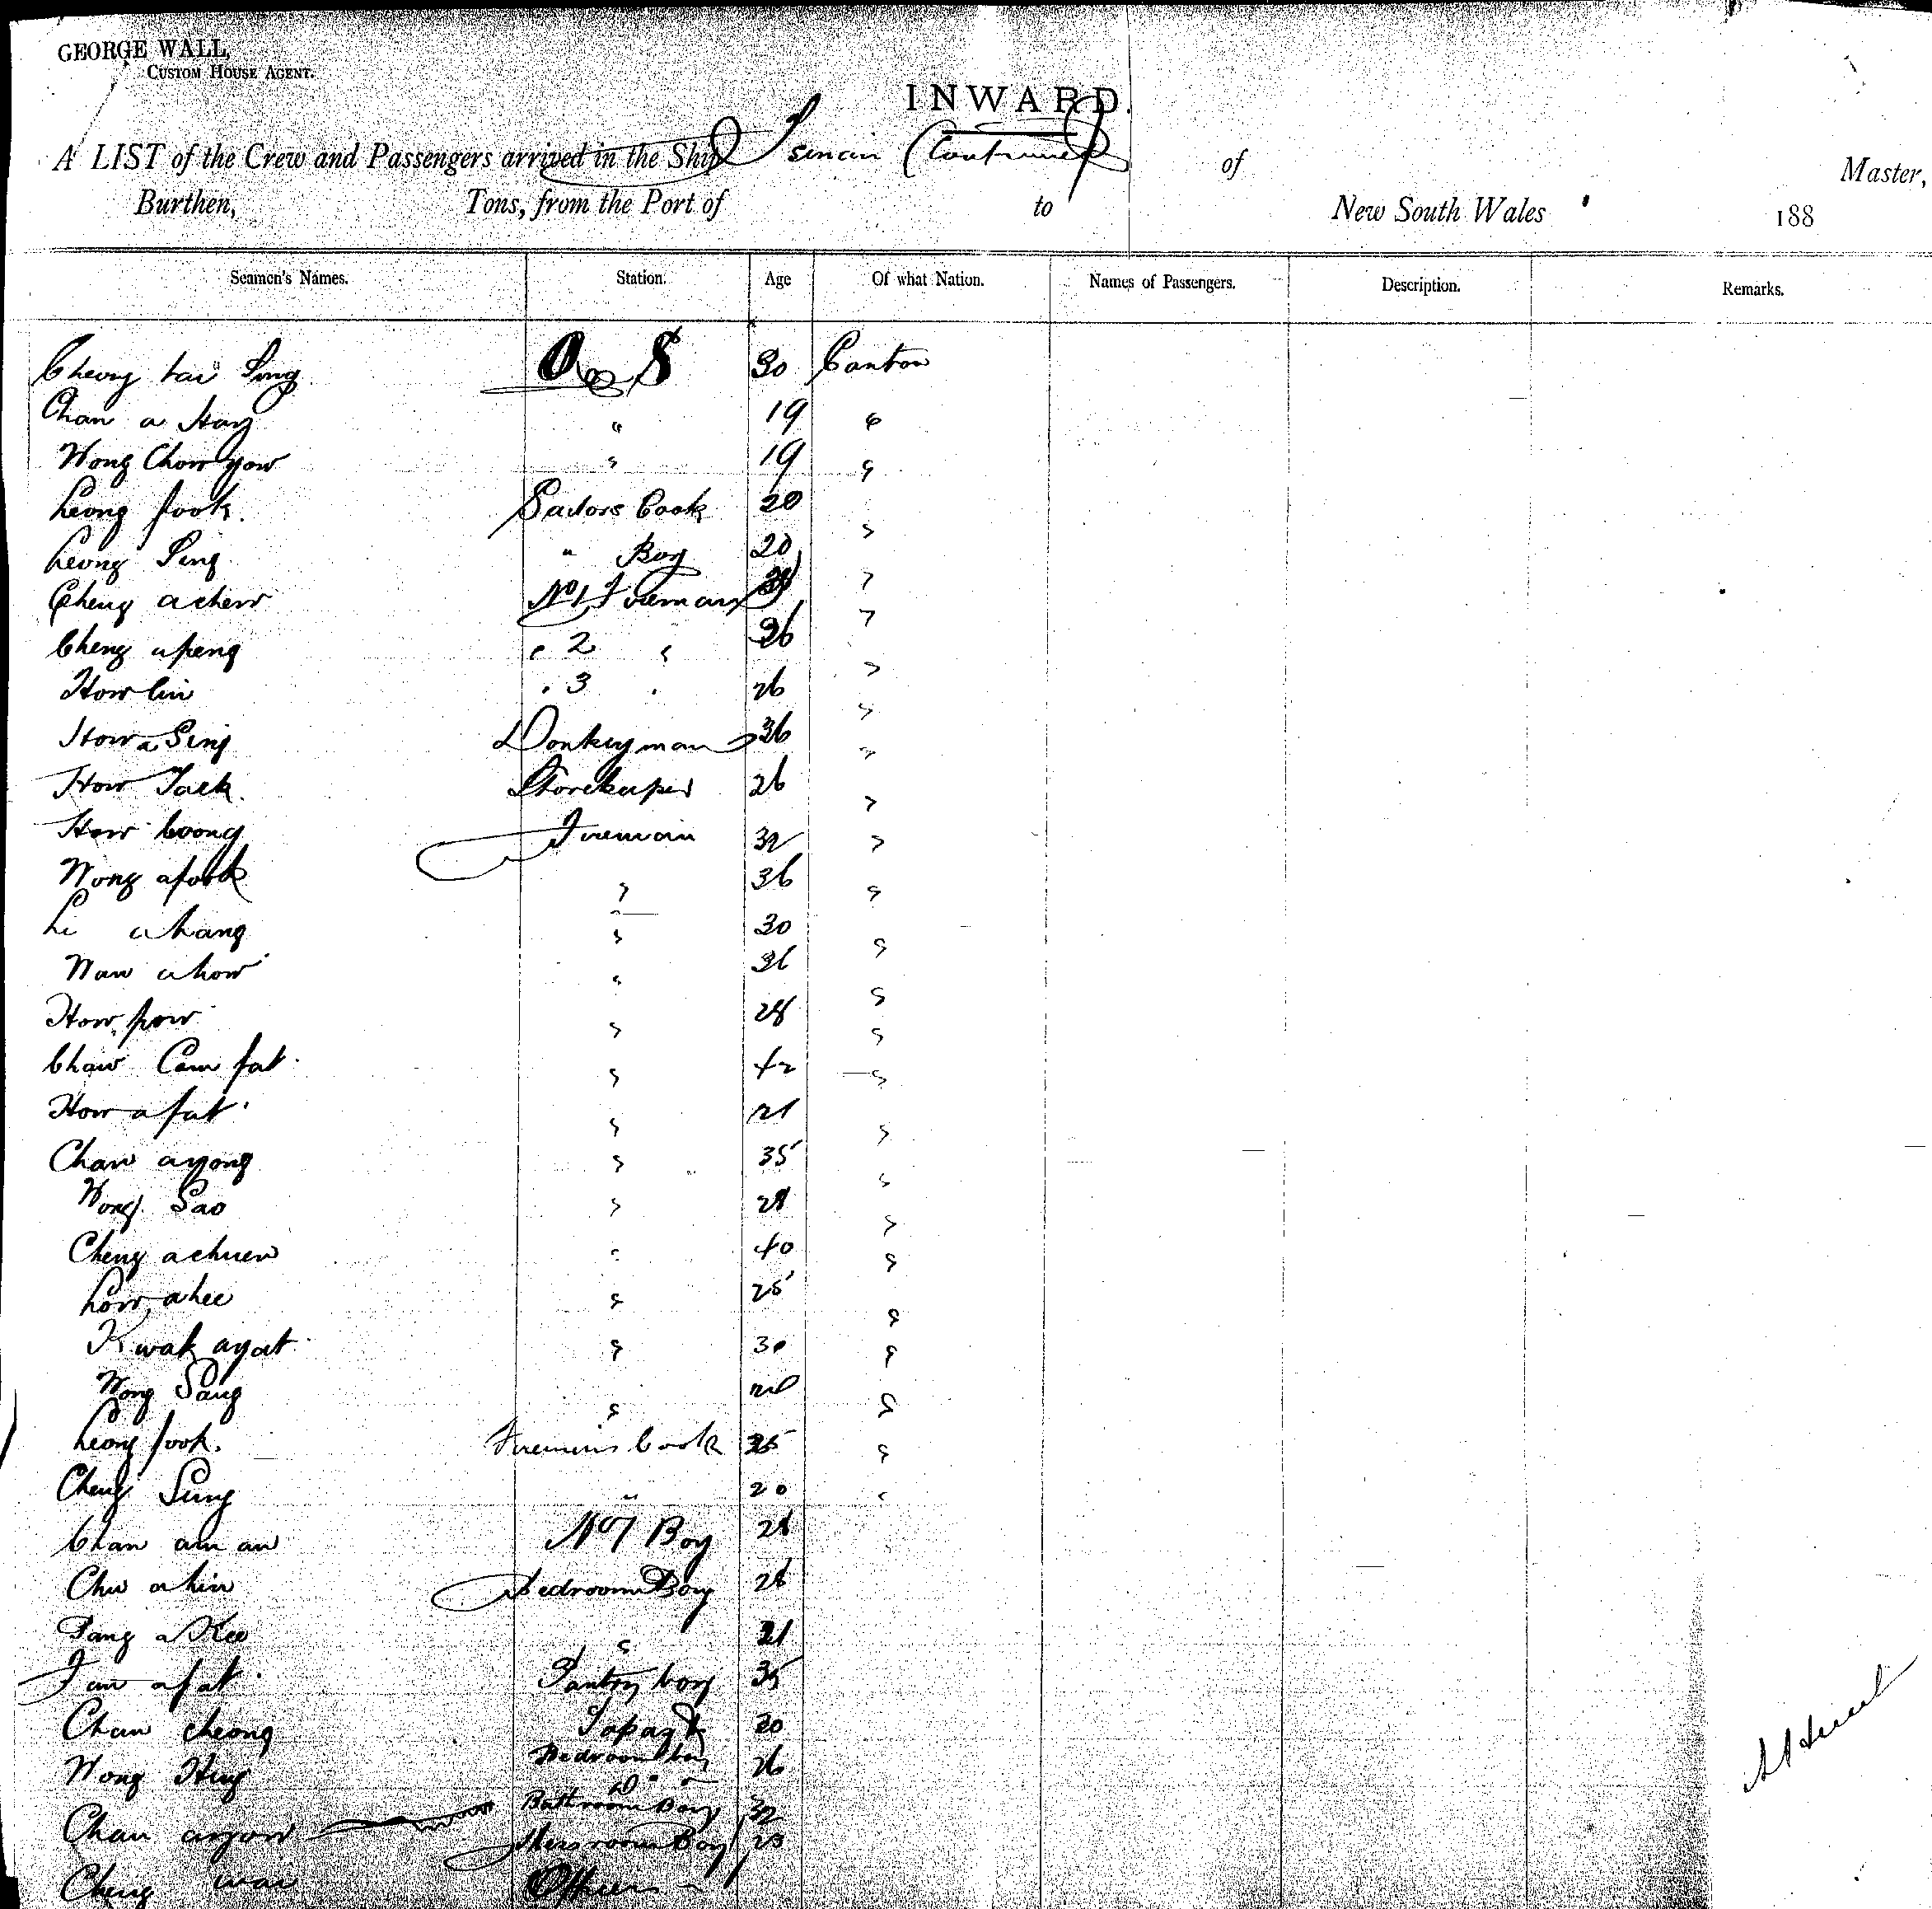 GEORGE WALL,
CUSTOM HOUSE AGENT.
INWARD.
A LIST of the Crew and Passengers arrived in the Ship Tsinan (Continued) of Master,
Burthen, Tons, from the Port of to New South Wales 188
Seamen's Names. Station. Age Of what Nation. Names of Passengers. Description. Remarks.
Cheong tai Sing 30 Canton
Chan a 19 "
Wong Chow yow " 19 "
Leong fook. Sailors Cook 20 "
Leong Sing " Boy 20 "
Cheng achew No 1 Fireman "
Cheng apeng " 2 " 36 "
How lin " 3 " 26 "
How a Sing Donkeyman 36 "
How Jack Storekeeper 26 "
How Coong Fireman 32 "
Wong afook " 36 "
Li ahang " 30 "
ahow " 36 "
How pow " 28 "
Chaw Cam fat " 42 "
How a fat " 21 "
Chan ayong " 35 "
Wong Sao " 28 "
Cheng achuen " 40 "
Low, ahee " 25 "
Kwak ayat " 30 "
Wong Sang " "
Leong fook. Firemen's Cook 25 "
Cheng Sung " 20 "
Chan am an No 1 Boy 28
Chu ahin Bedroom Boy 28
a Kee " 21
a fat Pantry boy 35
Chan cheong 20
Wong Hing Bedroom boy 26
Chan ayow Bathroom Boy 32
Messroom Boy 23
Cheng wai Officers